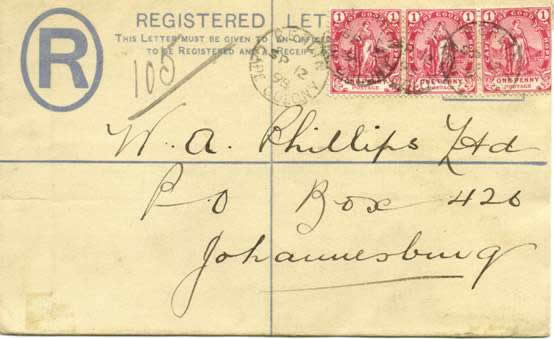 R
REGISTERED LET
THIS LETTER MUST BE GIVEN TO AN OFFICER
TO BE REGISTERED AND A RECEIPT
103
SP 12
98
COLONY
1 OF GOOD 1
1 OF GOOD 1
1 OF GOOD 1
POSTAGE
ONE PENNY
POSTAGE
ONE PENNY
POSTAGE
W. A. Phillips Ltd
PO Box 426
Johannesburg